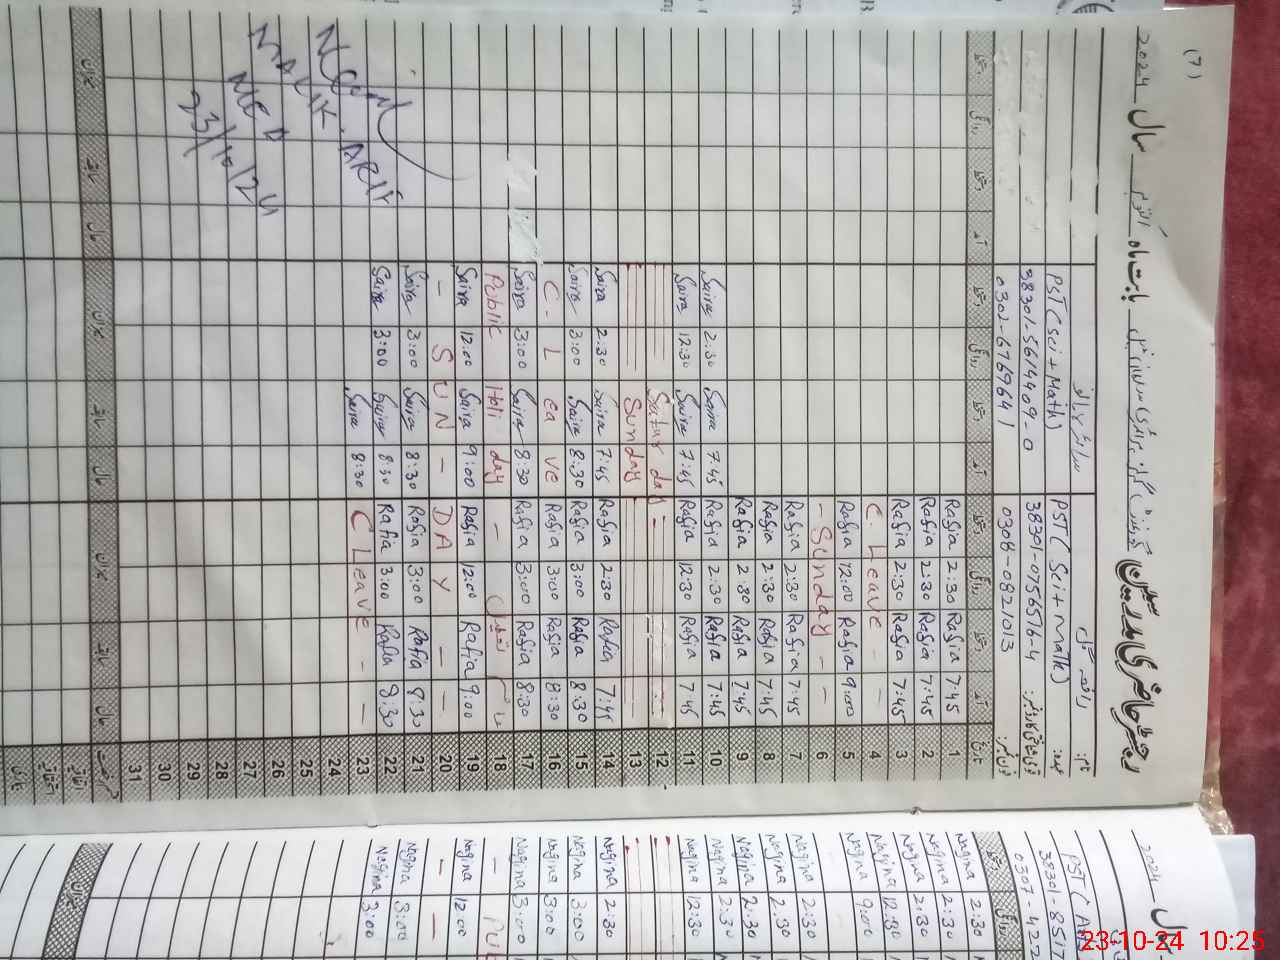 (7)
رجسٹر حاضری مدرسین
بابت ماہ اکتوبر سال 2024
نام:
عہدہ:
PST (Sci + Math)
PST (Sci + Math)
38301-0756576-4
38301-5614409-0
0308-0821013
0302-6769641
تاریخ آمد دستخط روانگی دستخط آمد دستخط روانگی دستخط آمد دستخط روانگی دستخط
1 7:45 Rafia 2:30 Rafia
2 7:45 Rafia 2:30 Rafia
3 7:45 Rafia 2:30 Rafia
4 - C. Leave -
5 9:00 Rafia 12:00 Rafia
6 - Sunday -
7 7:45 Rafia 2:30 Rafia
8 7:45 Rafia 2:30 Rafia
9 7:45 Rafia 2:30 Rafia
10 7:45 Rafia 2:30 Rafia 7:45 Saira 2:30 Saira
11 7:45 Rafia 12:30 Rafia 7:45 Saira 12:30 Saira
12 Saturday
13 Sunday
14 7:45 Rafia 2:30 Rafia 7:45 Saira 2:30 Saira
15 8:30 Rafia 3:00 Rafia 8:30 Saira 3:00 Saira
16 8:30 Rafia 3:00 Rafia C - Leave
17 8:30 Rafia 3:00 Rafia 8:30 Saira 3:00 Saira
18 Public Holiday
19 9:00 Rafia 12:00 Rafia 9:00 Saira 12:00 Saira
20 - SUN - DAY -
21 8:30 Rafia 3:00 Rafia 8:30 Saira 3:00 Saira
22 8:30 Rafia 3:00 Rafia 8:30 Saira 3:00 Saira
23 - C Leave - 8:30 Saira
24
25
26
27
28
29
30
31
میزان
سابقہ
حال
MALIK ARIF
23/10/24
سال 2024
38301-8517
0307-422
2:30 Nagina
2:30 Nagina
2:30 Nagina
12:30 Nagina
9:00 Nagina
2:30 Nagina
2:30 Nagina
2:30 Nagina
2:30 Nagina
12:30 Nagina
2:30 Nagina
3:00 Nagina
3:00 Nagina
3:00 Nagina
12:00 Nagina
3:00 Nagina
3:00 Nagina
23-10-24 10:25